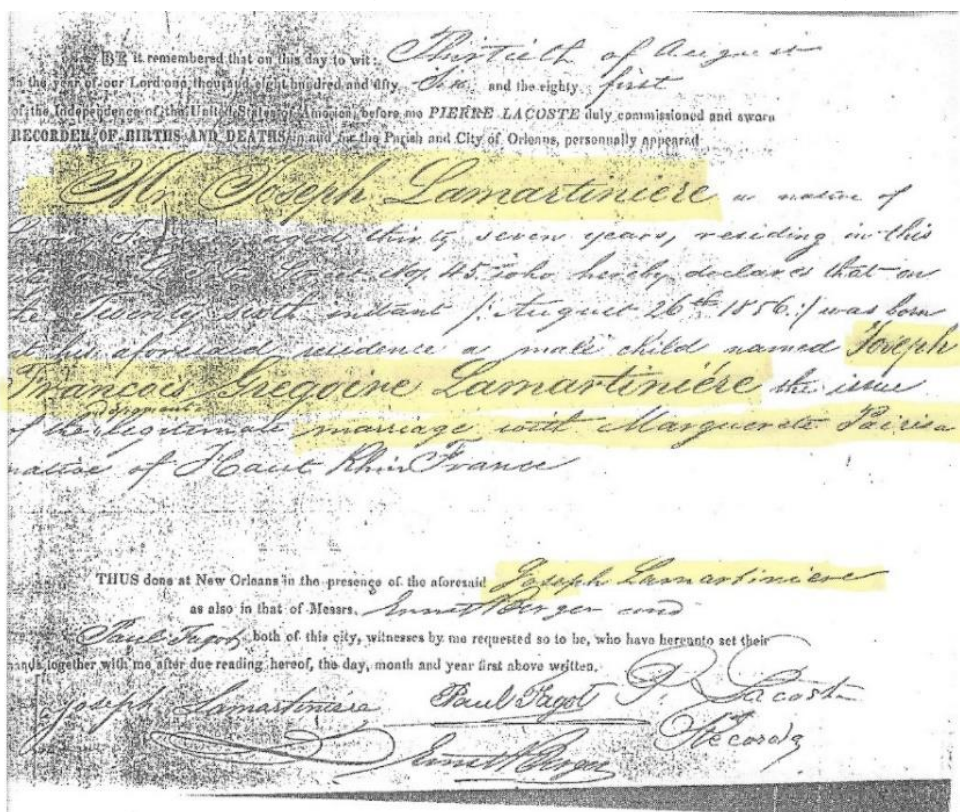 BE it remembered that on this day to wit: Thirtieth of August
in the year of our Lord one thousand eight hundred and fifty Six and the eighty first
of the Independence of the United States of America, before me PIERRE LACOSTE duly commissioned and sworn
RECORDER OF BIRTHS AND DEATHS in and for the Parish and City of Orleans, personnally appeared
Mr Joseph Lamartiniere a native of
France aged thirty seven years, residing in this
No. 45. who hereby declares that on
the Twenty sixth instant /: August 26th 1856 :/ was born
at his aforesaid residence a male child named Joseph
François Gregoire Lamartiniére the issue
of the legitimate marriage with Marguerete
native of Haut Rhin France
THUS done at New Orleans in the presence of the aforesaid Joseph Lamartiniere
as also in that of Messrs. Ernest Berger and
Paul Fagot both of this city, witnesses by me requested so to be, who have hereunto set their
hands together with me after due reading hereof, the day, month and year first above written.
Joseph Lamartiniére Paul Fagot P. Lacoste
Ernest Berger Recorder